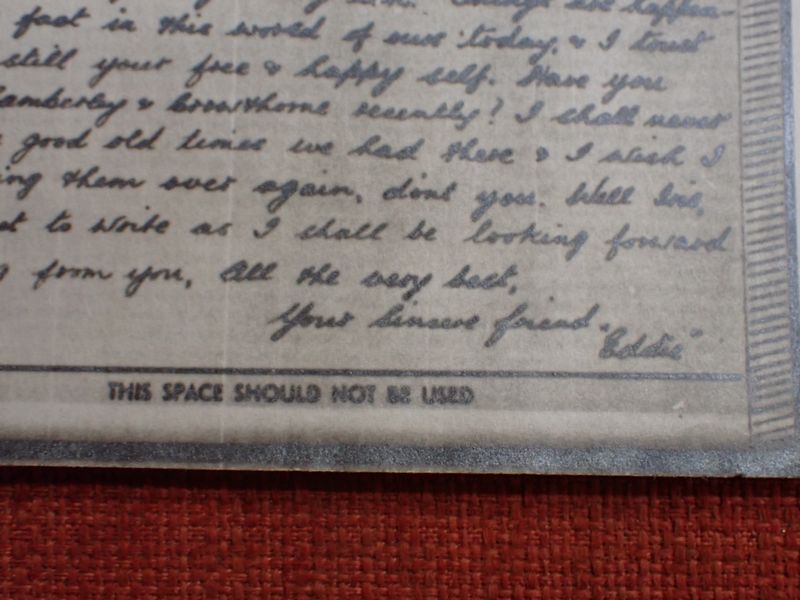 Things are happen-
fast in this world of ours today, & I trust
still your free & happy self. Have you
Camberley & Crowthorne recently? I shall never
good old times we had there & I wish I
them over again, dont you. Well Iris,
to write as I shall be looking forward
from you, All the very best,
Your Sincere friend
"Eddie"
THIS SPACE SHOULD NOT BE USED